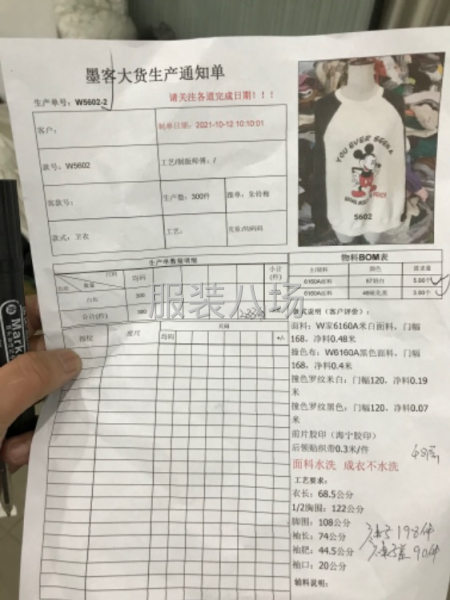 墨客大货生产通知单
生产单号: W5602-2
请关注各道完成日期！！！
客户:
制单日期: 2021-10-12 10:10:01
款号: W5602
工艺/制版师傅: /
客款号:
生产数: 300件
款式: 卫衣
工艺:
YOU EVER SEEN A
5602
生产单数量明细
小计(件)
均码
数量
300
合计(件)
300
288
物料BOM表
颜色
6160A面料
5.00个
6160A面料
3.00个
款式说明（客户评价）:
面料: W家6160A米白面料，门幅
168，净料0.48米
撞色布: W6160A黑色面料，门幅
168，净料0.4米
撞色罗纹米白: 门幅120、净料0.19
米
撞色罗纹黑色: 门幅120、净料0.07
米
前片胶印（海宁胶印）
后领贴织带0.3米/件
面料水洗 成衣不水洗
工艺要求:
衣长: 68.5公分
1/2胸围: 122公分
脚围: 108公分
袖长: 74公分
198件
袖肥: 44.5公分
90件
袖口: 20公分
辅料说明:
部位
度尺
均码
尺码
+/-
服装八场
Mark